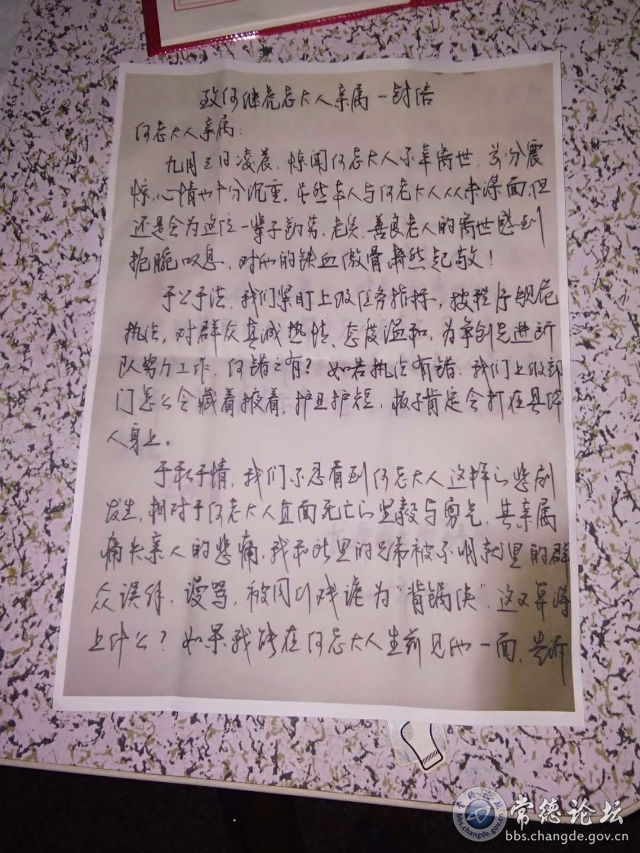 致何继亮老大人亲属一封信
何老大人亲属:
九月三日凌晨,惊闻何老大人不幸离世,万分震
惊,心情也十分沉重。虽然本人与何老大人从未谋面,但
还是会为这位一辈子勤劳、老实、善良老人的离世感到
扼腕叹息,对他的铁血傲骨肃然起敬!
于公于法,我们紧盯上级任务指标,按程序规范
执法,对群众真诚热情,态度温和,为争创先进
队努力工作,何错之有?如若执法有错,我们上级部
门怎么会藏着掖着,护丑护短,板子肯定会打在具体
人身上。
于私于情,我们不忍看到何老大人这样的悲剧
发生,相对于何老大人直面死亡的坚毅与勇气,其亲属
痛失亲人的悲痛,我和所里的兄弟被不明就里的群
众误解、谩骂,被网以戏谑为“背锅侠”,这又算得
上什么?如果我能在何老大人生前见他一面,告诉
常德论坛
bbs.changde.gov.cn